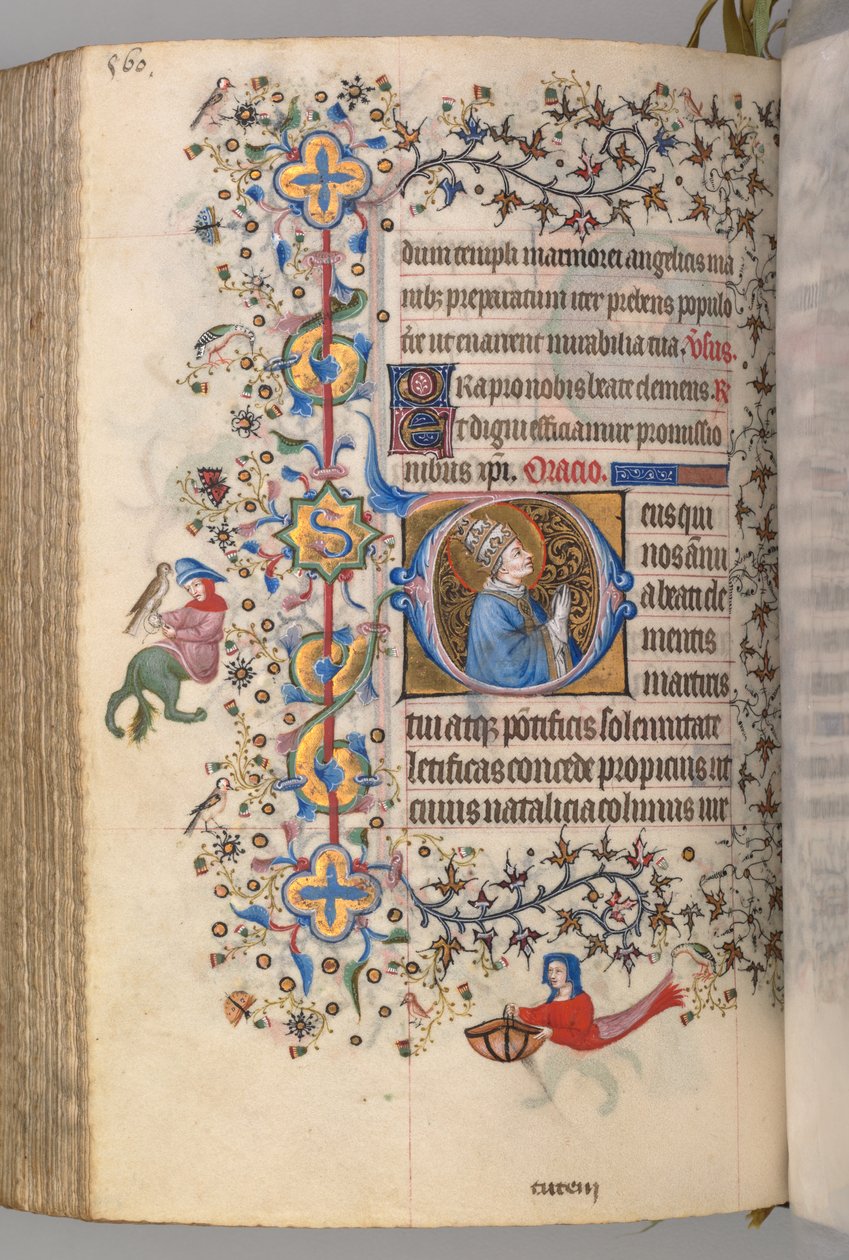 560.
dum templi marmorei angelicis ma
nibꝫ preparatum iter prebens populo
t̄re ut enarrent mirabilia tua. v̄sus.
Ora pro nobis beate clemens. R
Et digni efficiamur promissio
nibus xp̄i. Oracio.
S
Deus qui
nos ānu
a beati cle
mentis
martiris
tui atqꝫ pōtificis solennitate
letificas concede propicius ut
cuius natalicia colimus uir
tutem